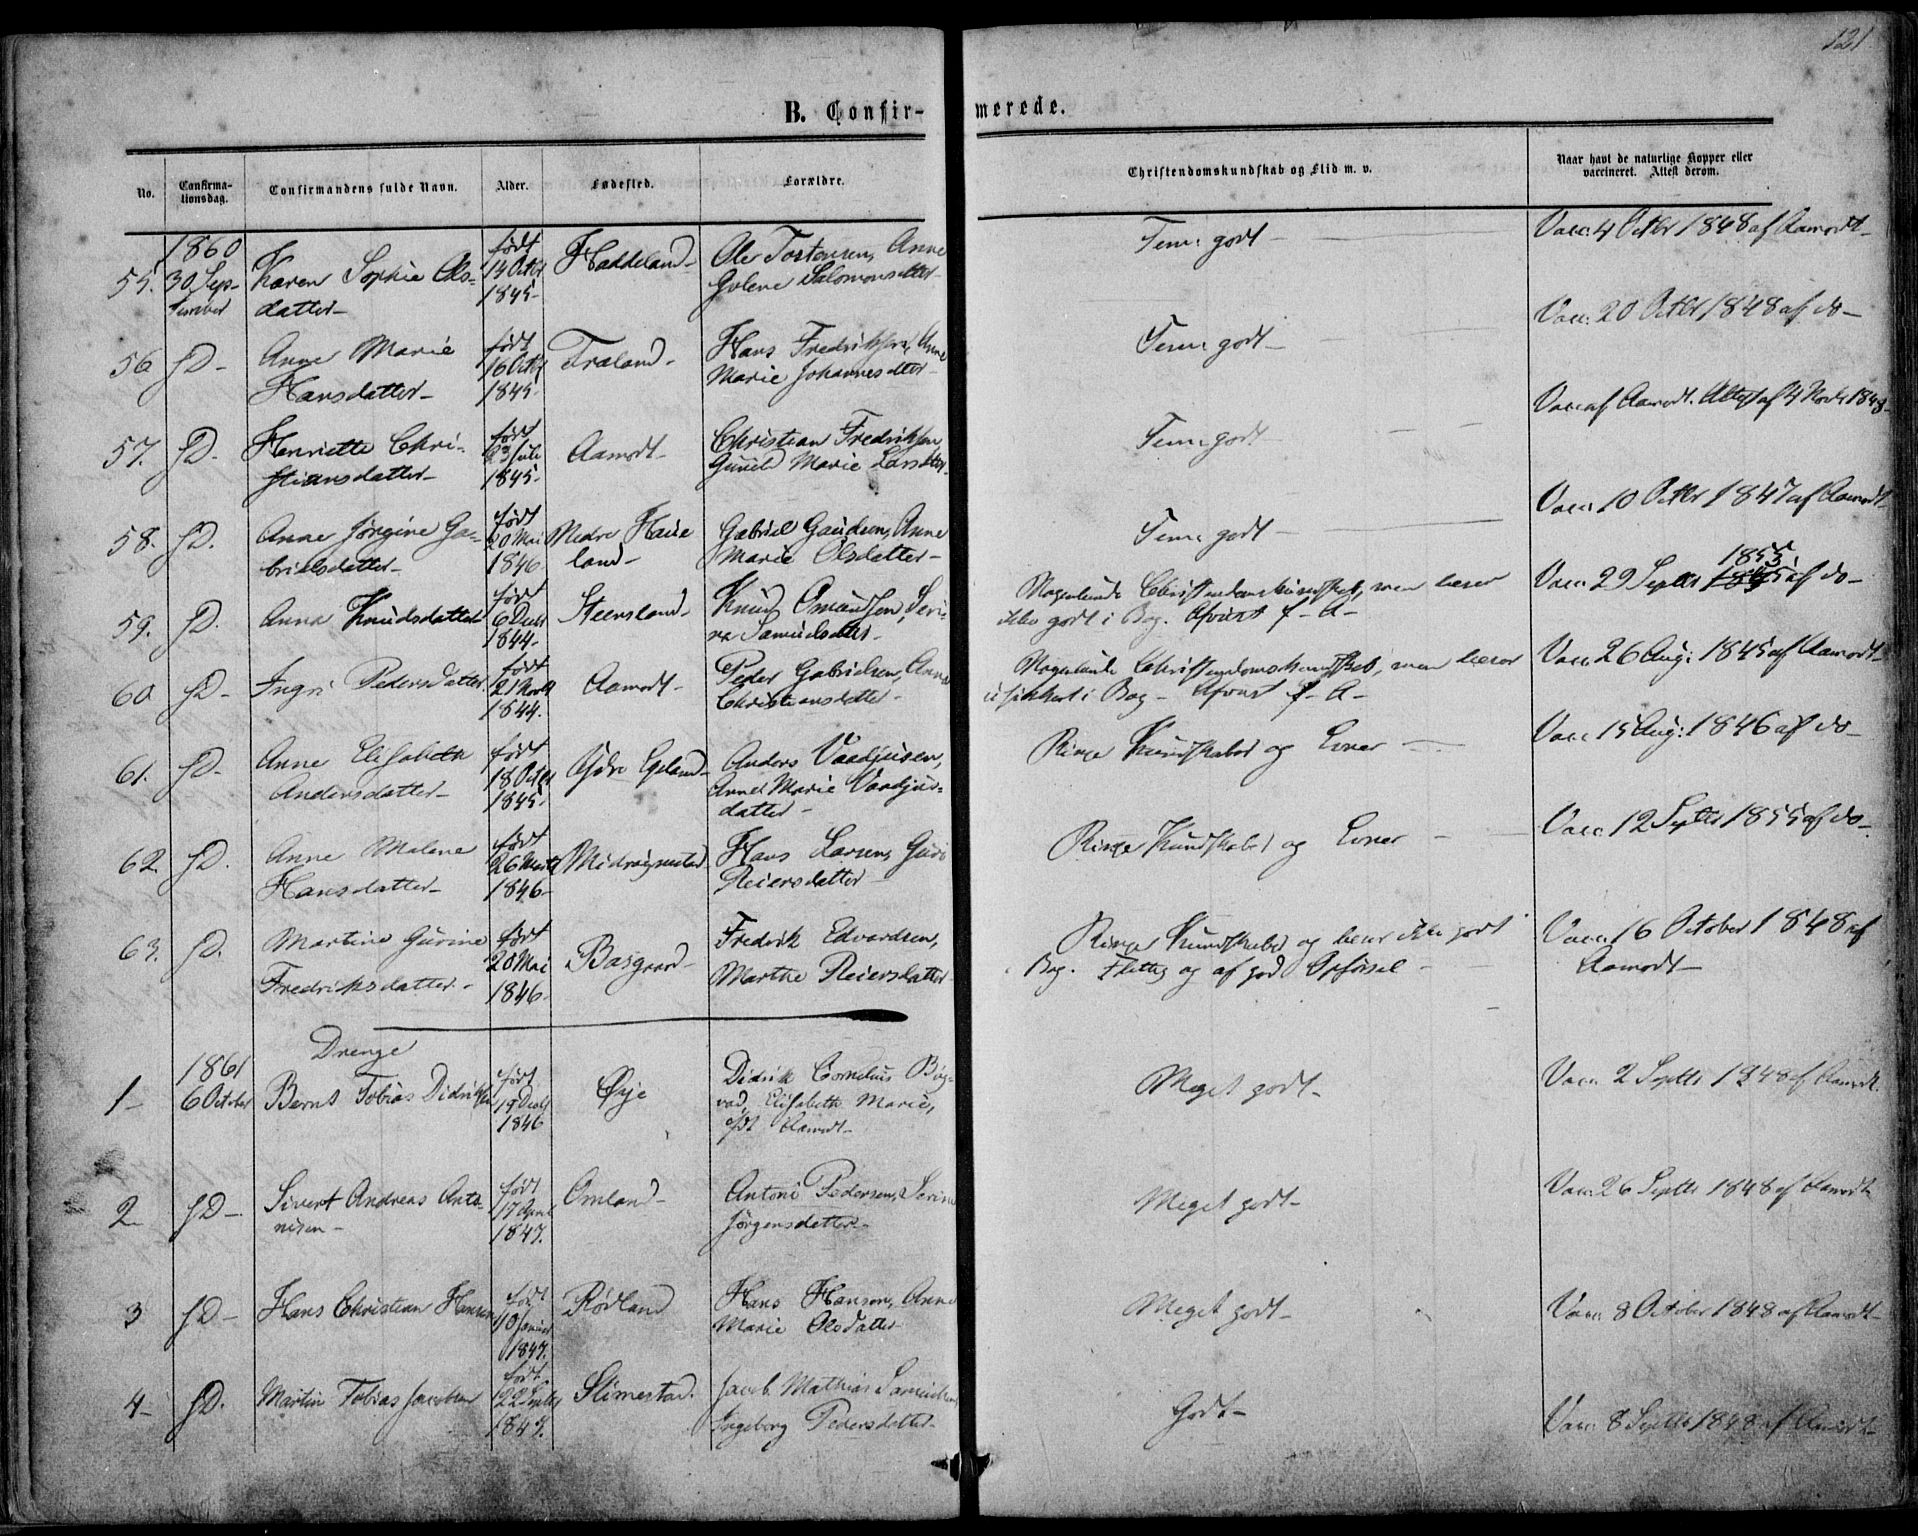 121
B. Confirmerede.
No. Confirmationsdag. Confirmandens fulde Navn. Alder. Fødested. Forældre. Christendomskundskab og Flid m. v. Naar havt de naturlige Kopper eller vaccineret. Attest derom.
1860 født
55. 30 Sep- Karen Sophie Ols- 14 Octbr Haddeland- Ole Tostensen, Anne Tem: godt - Vacc. 4 Octbr 1848 af Aamodt-
tember datter- 1845- Golene Salomonsdatter-
56 sD- Anne Marie født Fraland- Hans Fredriksen, Anne Tem: godt- Vacc. 20 Octbr 1848 af do-
Hansdatter- 16 Octbr 1845- Marie Johannesdtter-
57. sD. Henriette Chri- født Aamodt- Christian Fredriksen Tem: godt- Vacc af Aamodt. Attest af 4 Novbr 1848-
stiansdatter- 23 Juli 1845- Gunild Marie Larsdtter-
58. sD. Anne Jørgine Ga- født Nedre Haue Gabriel Gaudsen, Anne Tem: godt- Vacc. 10 Octbr 1847 af Aamodt-
brielsdatter- 20 Mai 1846- land- Marie Olsdatter-
59. sD. Anna Knudsdatter født Steersland- Knud Omundsen, Seri- Christendomskundskab, men læser Vacc. 29 Septbr 1855 af do-
6 Decbr 1844- ne Samuelsdtter- ikke godt i Bog.
60 sD- Ingri Pedersdatter født Aamodt- Peder Gabrielsen, Anne Christendomskundskab, men læser Vacc. 26 Aug: 1845 af Aamodt-
21 Novbr 1844. Christiansdatter- i Bog-
61. sD- Anne Elisabeth født Ydre Egeland- Anders Vaadjusen, Ringe Kundskaber og Evner - Vacc 15 Aug: 1846 af do-
Andersdatter- 18 Octbr 1845- Anne Marie Vaadjus-
datter-
62. sD. Anne Malene født Hans Larsen, Guri Ringe Kundskaber og Evner - Vacc. 12 Septbr 1855 af do-
Hansdatter- 26 Marts 1846- Reiersdatter
63. sD. Martine Gurine født Basgaard- Fredrik Edvardsen, Ringe Kundskaber og læser ikke godt Vacc. 16 October 1848 af
Fredriksdatter- 20 Mai 1846- Marthe Reiersdatter Bog. Flittig og af god Opførsel - Aamodt-
Drenge
1861 født
1- 6 October Bernt Tobias Didriksen 19 Decbr Øye Didrik Cornelius Bøg- Meget godt- Vacc. 2 Septbr 1848 af Aamodt.
1846 vad, Elisabeth Marie,
født Aamodt-
2. sD- Sivert Andreas Anto- født Omland- Antoni Pedersen, Serine Meget godt- Vacc. 26 Septbr 1848 af Aamodt
nisen- 17 April 1847. Jørgensdatter-
3 sD- Hans Christian Hansen født Rødland Hans Hansen, Anne Meget godt- Vacc. 8 October 1848 af Aamodt-
10 Januar 1847. Marie Olsdatter
4- sD. Martin Tobias Jacobsen født Slimestad. Jacob Mathias Samuelsen Godt- Vacc. 8 Septbr 1848 af Aamodt-
22 Septbr 1847. Ingeborg Pedersdatter-